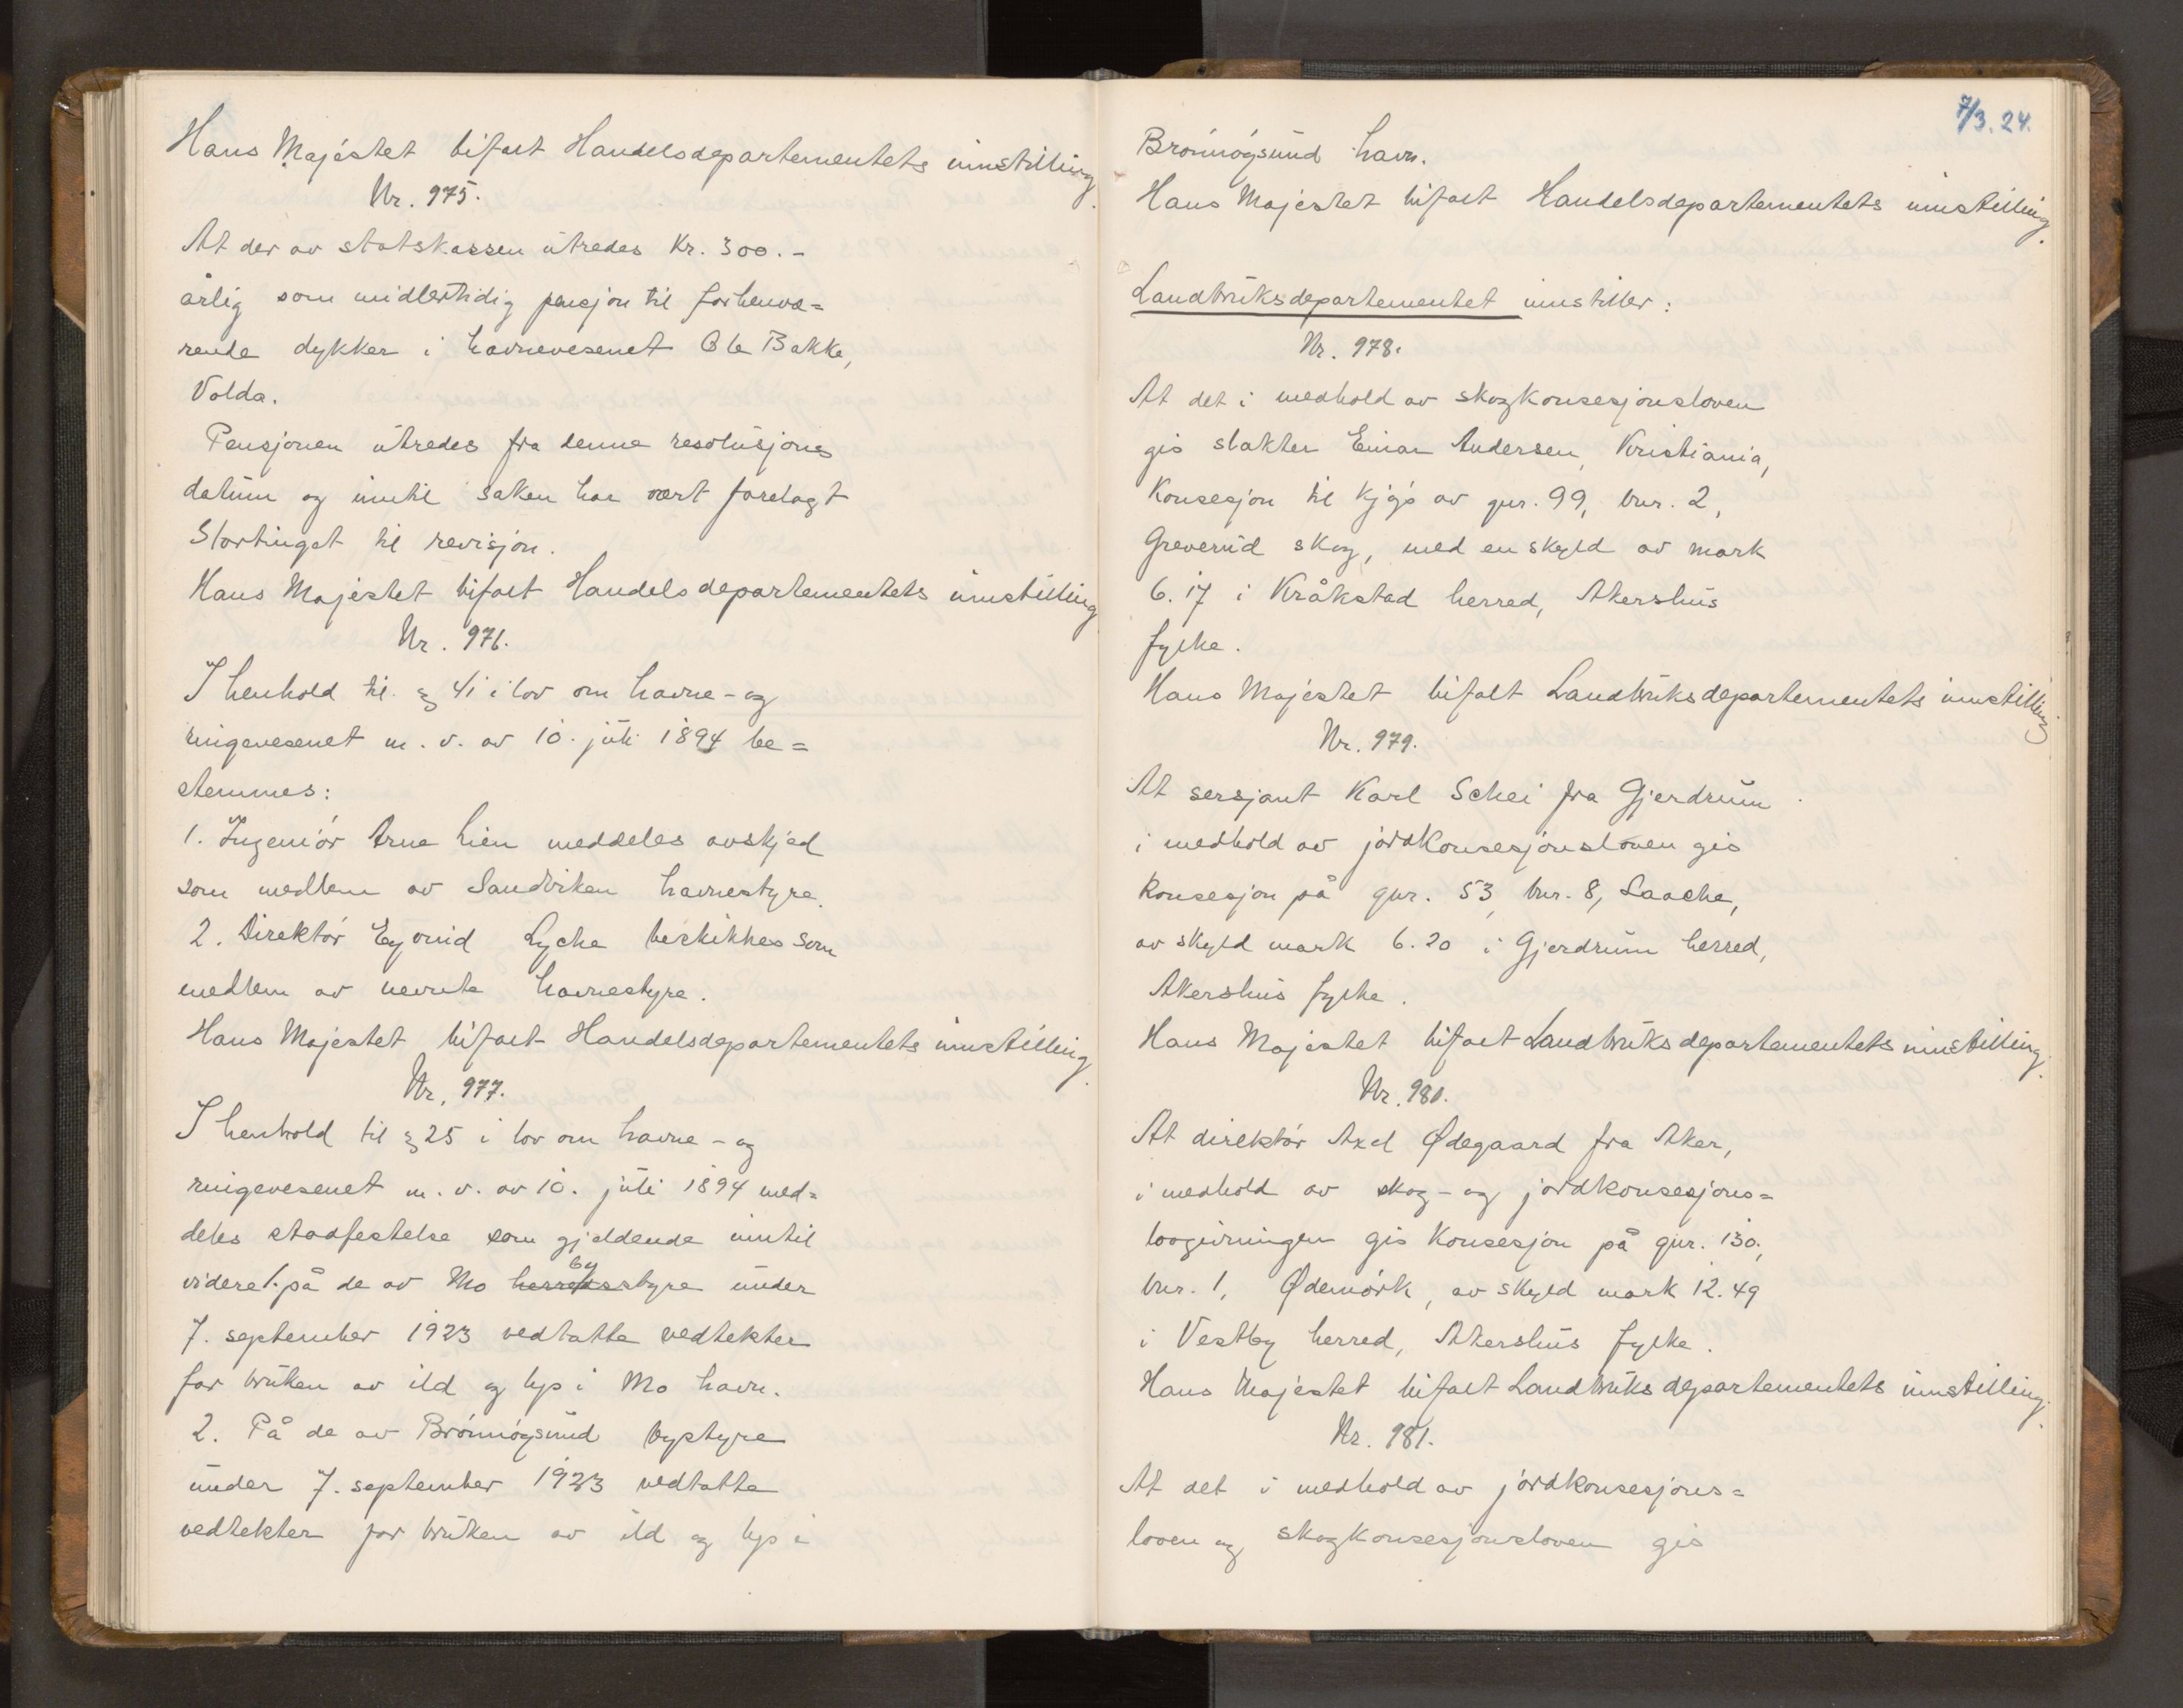 Hans Majestet bifalt Handelsdepartementets innstilling.
Nr. 975.
At der av statskassen utredes Kr. 300.-
årlig som midlertidig pensjon til forhenvæ=
rende dykker i havnevesenet Ole Bakke,
Volda.
Pensjonen utredes fra denne resolusjons
datum og inntil saken har vært forelagt
Stortinget til revisjon.
Hans Majestet bifalt Handelsdepartementets innstilling
Nr. 976.
I henhold til § 41 i lov om havne- og
ringevesenet m. v. av 10. juli 1894 be=
stemmes:
1. Ingeniør Arne Lien meddeles avskjed
som medlem av Sandviken havnestyre.
2. Direktør Eyvind Lyche beskikkes som
medlem av nevnte havnestyre.
Hans Majestet bifalt Handelsdepartementets innstilling.
Nr. 977.
I henhold til § 25 i lov om havne- og
ringevesenet m. v. av 10. juli 1894 med=
deles stadfestelse som gjeldende inntil
by
videre 1. på de av Mo herredsstyre under
7. september 1923 vedtatte vedtekter
for bruken av ild og lys i Mo havn.
2. På de av Brønnøysund bystyre
under 7. september 1923 vedtatte
vedtekter for bruken av ild og lys i
7/3.24.
Brønnøysund havn.
Hans Majestet bifalt Handelsdepartementets innstilling.
Landbruksdepartementet innstiller:
Nr. 978.
At det i medhold av skogkonsesjonsloven
gis slakter Einar Andersen, Kristiania,
Konsesjon til kjøp av gnr. 99, bnr. 2,
Greverud skog, med en skyld av mark
6.17 i Kråkstad herred, Akershus
fylke.
Hans Majestet bifalt Landbruksdepartementets innstilling
Nr. 979.
At sersjant Karl Schei fra Gjerdrum
i medhold av jordkonsesjonsloven gis
Konsesjon på gnr. 53, bnr. 8, Laache,
av skyld mark 6.20 i Gjerdrum herred,
Akershus fylke.
Hans Majestet bifalt Landbruksdepartementets innstilling.
Nr. 980.
At direktør Axel Ødegaard fra Aker,
i medhold av skog- og jordkonsesjons=
lovgivningen gis Konsesjon på gnr. 130,
bnr. 1, Ødemørk, av skyld mark 12.49
i Vestby herred, Akershus fylke.
Hans Majestet bifalt Landbruksdepartementets innstilling.
Nr. 981.
At det i medhold av jordkonsesjons=
loven og skogkonsesjonsloven gis